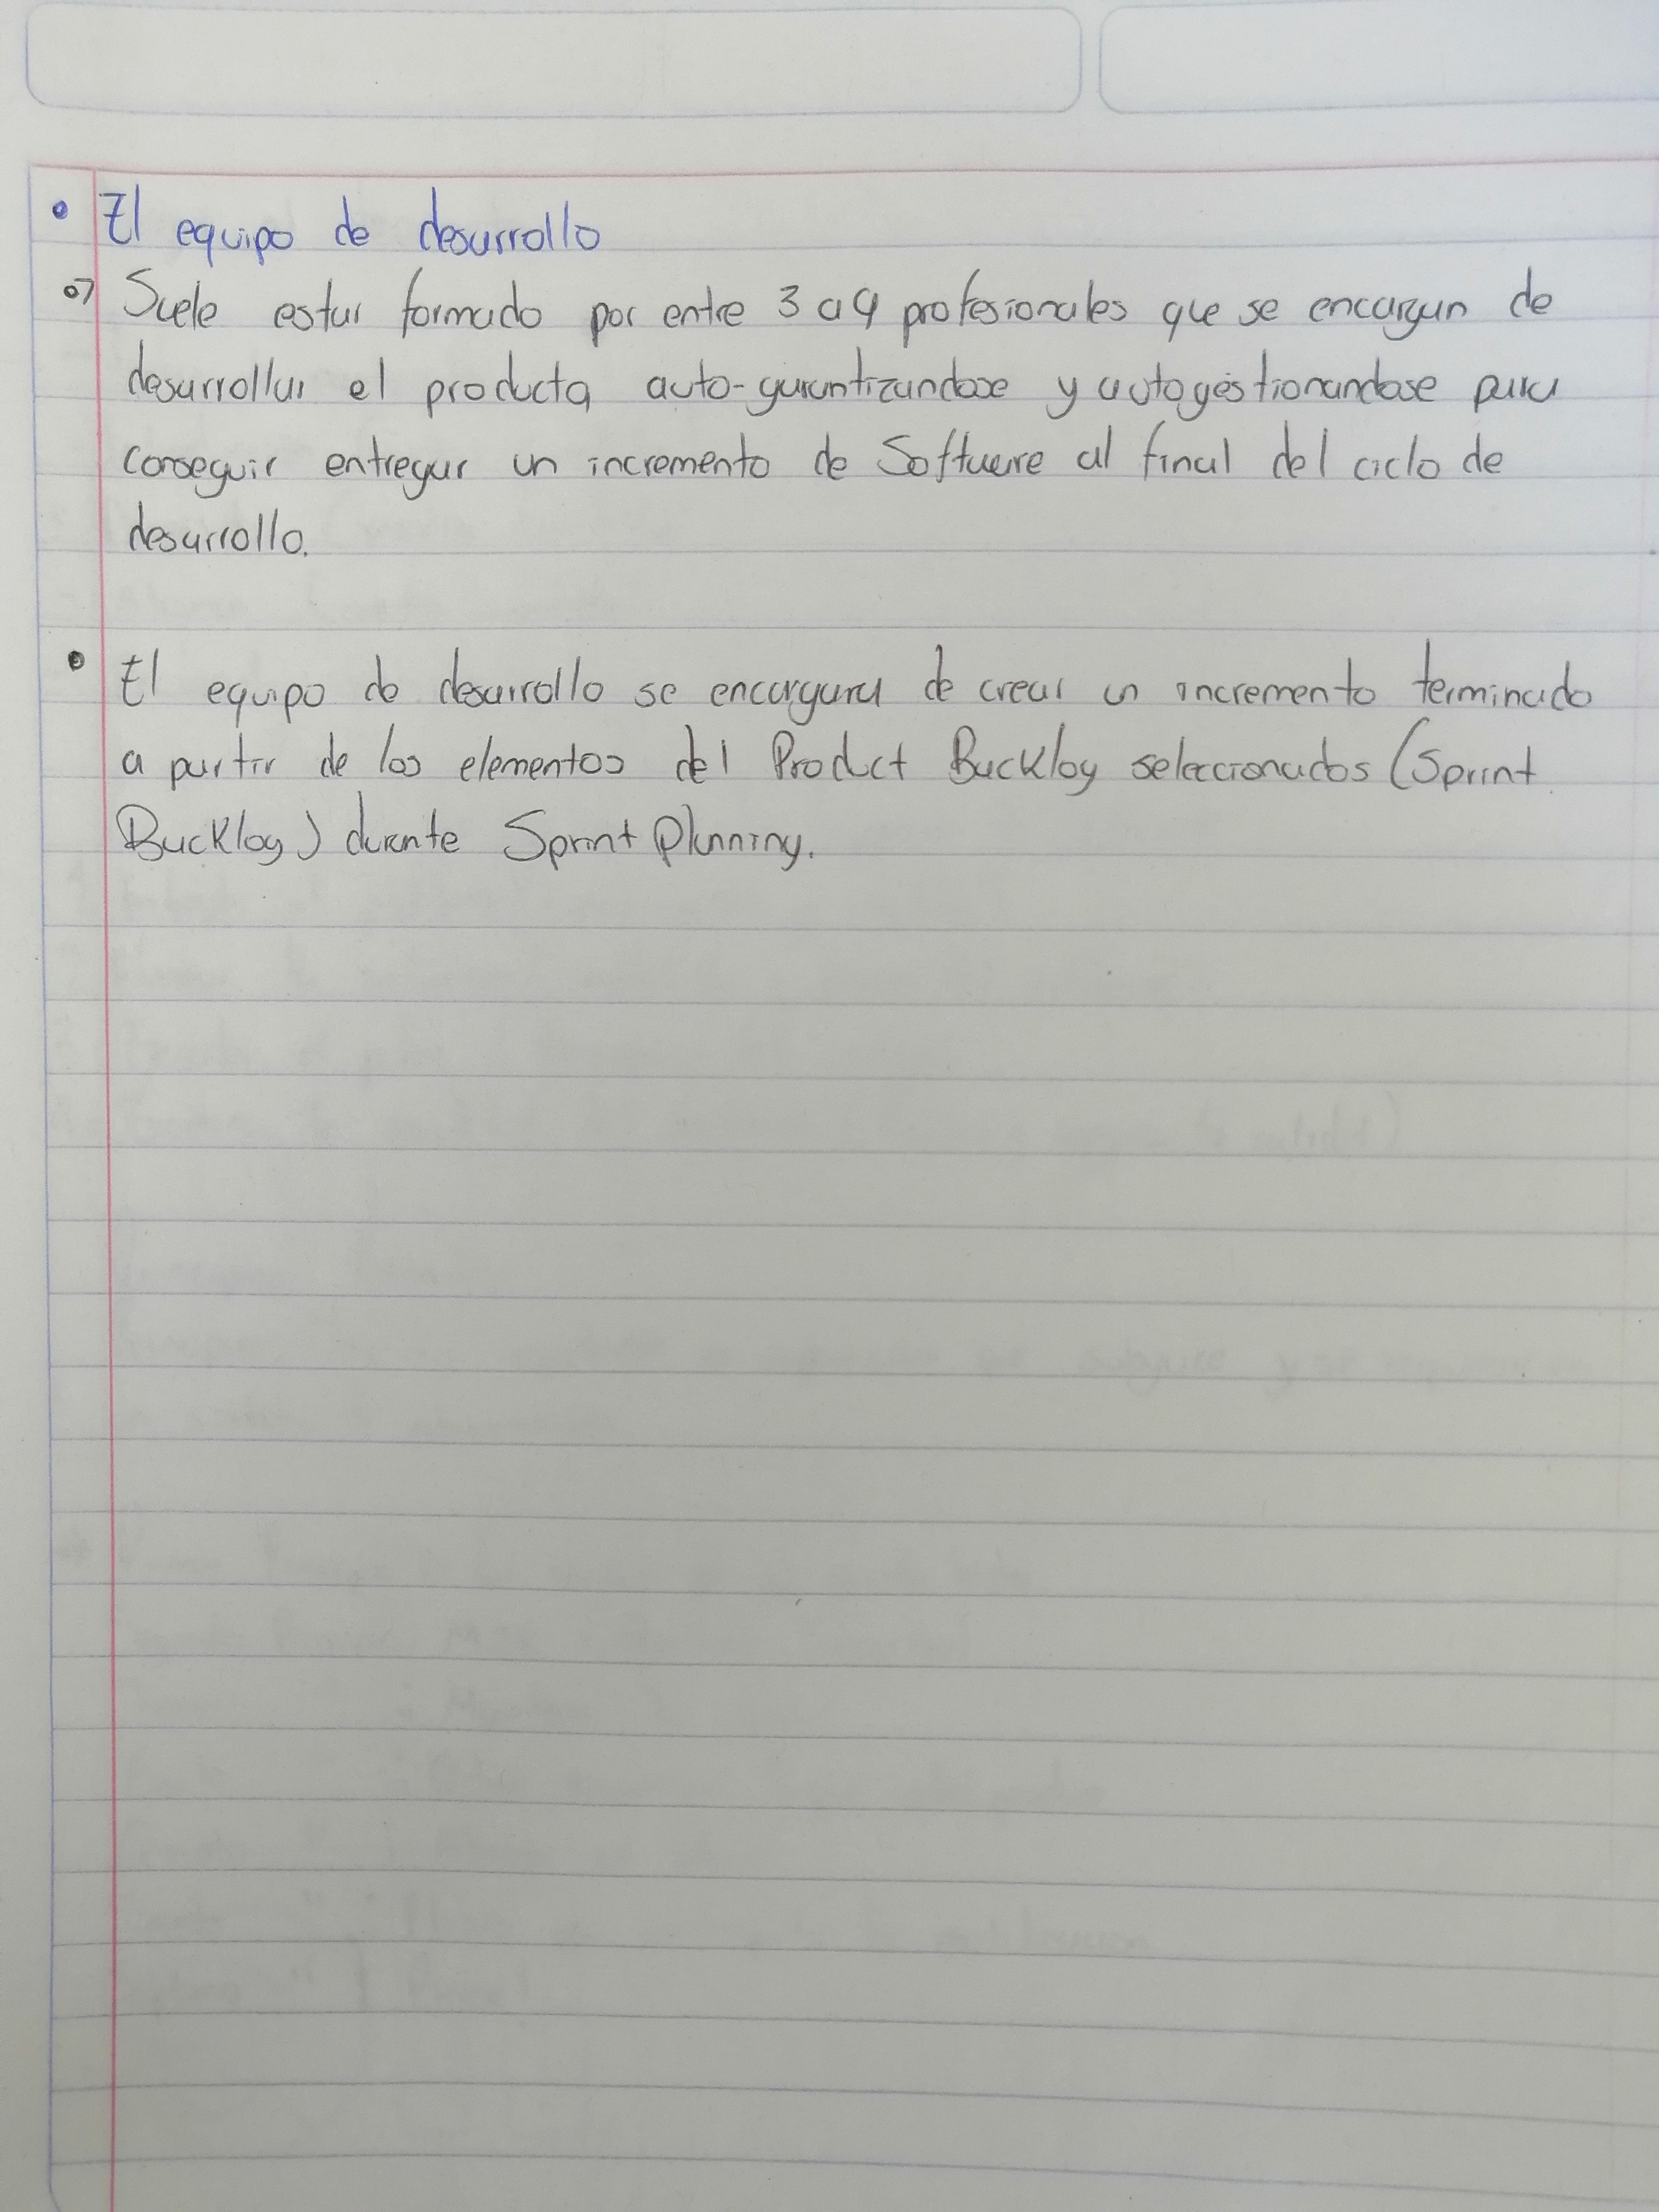 • El equipo de desarrollo
Suele estar formado por entre 3 a 9 profesionales que se encargan de
desarrollar el producto auto-garantizandose y autogestionandose para
conseguir entregar un incremento de Software al final del ciclo de
desarrollo.
• El equipo de desarrollo se encargara de crear un incremento terminado
a partir de los elementos del Product Backlog seleccionados (Sprint
Backlog) durante Sprint Planning.